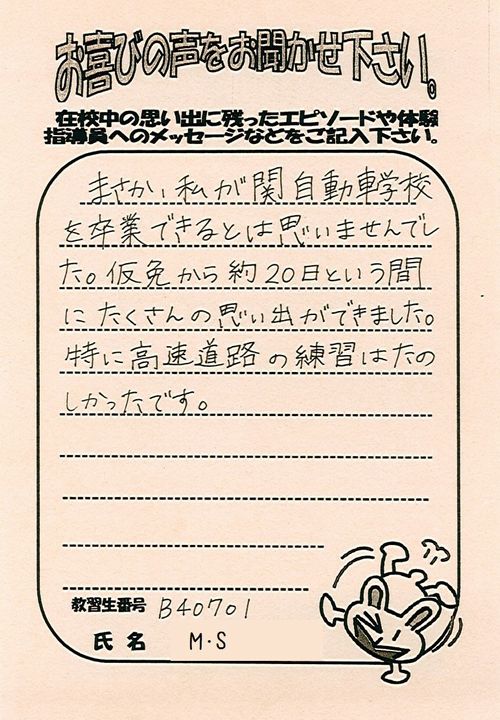 お喜びの声をお聞かせ下さい。
在校中の思い出に残ったエピソードや体験
指導員へのメッセージなどをご記入下さい。
まさか、私が関自動車学校
を卒業できるとは思いませんでし
た。仮免から約20日という間
にたくさんの思い出ができました。
特に高速道路の練習はたの
しかったです。
教習生番号 B40701
氏名 M・S